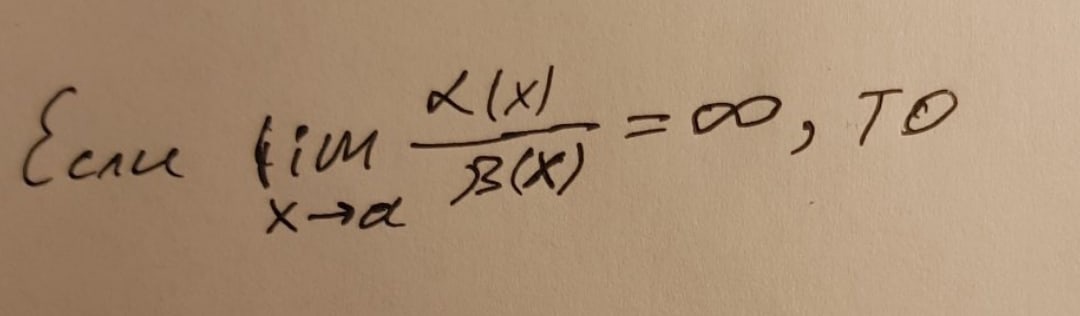 Если lim x→a α(x)/β(x) = ∞, то